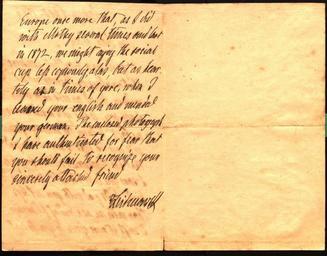 Europe once more that, as I did
with Motley several times and last
in 1872, we might enjoy the social
cup less copiously alas, but as hear-
tily as in times of yore, when I
learned your english and mended
your german. The enclosed photograph
I have authenticated for fear that
you should fail to recognize your
sincerely attached friend